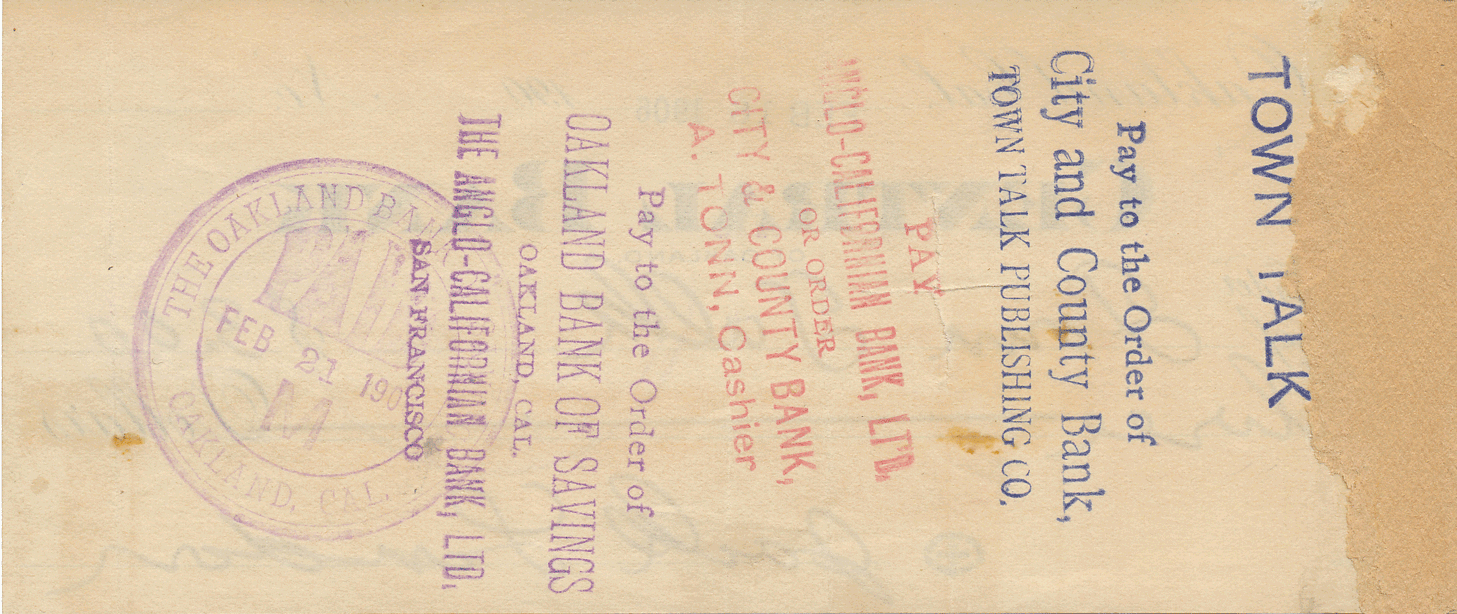 TOWN TALK
Pay to the Order of
City and County Bank,
TOWN TALK PUBLISHING CO.
PAY
ANGLO-CALIFORNIAN BANK, LTD.
OR ORDER
CITY & COUNTY BANK,
A. TONN, Cashier
Pay to the Order of
OAKLAND BANK OF SAVINGS
OAKLAND, CAL.
THE ANGLO-CALIFORNIAN BANK, LTD.
SAN FRANCISCO
THE OAKLAND BANK
FEB 21 190
OAKLAND, CAL.